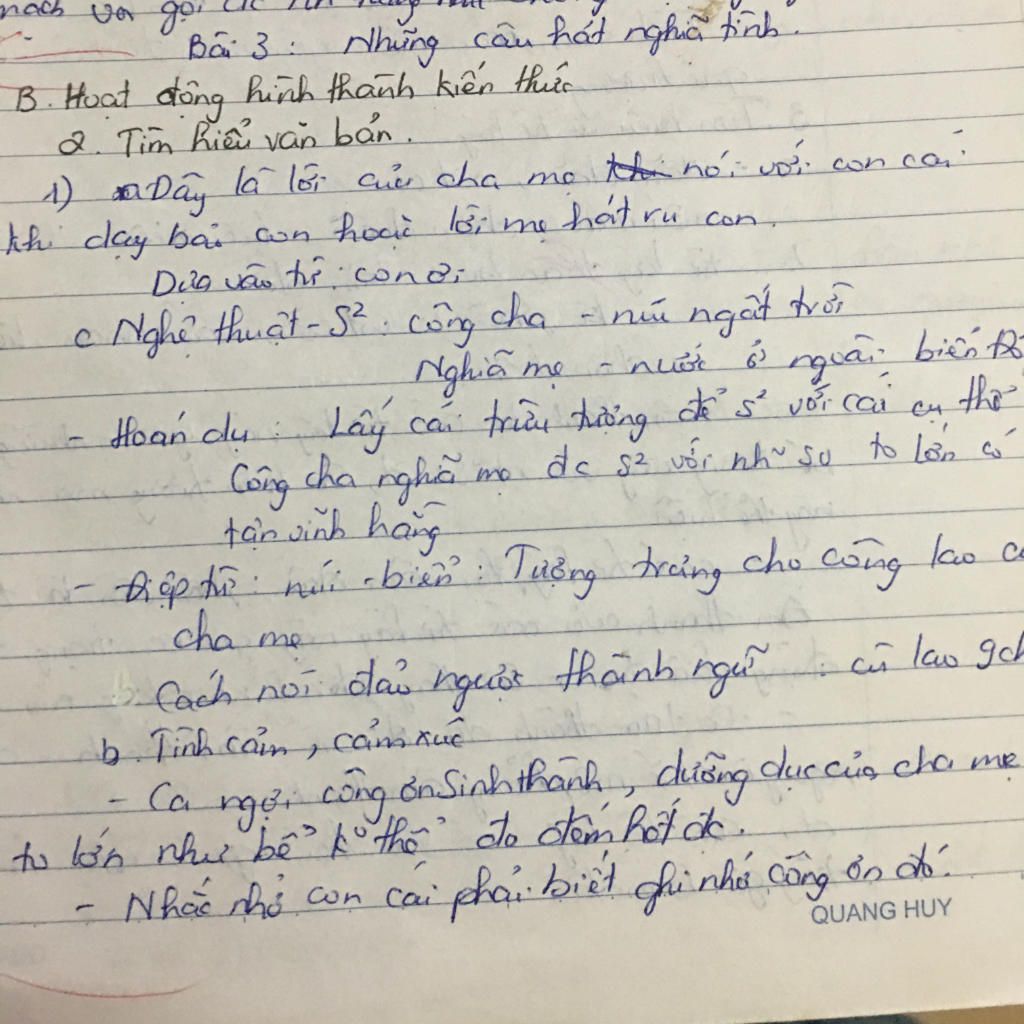 mạch và gọi
Bài 3: Những câu hát nghĩa tình.
B. Hoạt động hình thành kiến thức
2. Tìm hiểu văn bản.
1) a Đây là lời của cha mẹ nói với con cái
khi dạy bảo con hoặc lời mẹ hát ru con.
Dựa vào từ: con ơi
c Nghệ thuật - S²: công cha - núi ngất trời
Nghĩa mẹ - nước ở ngoài biển Đô
- Hoán dụ: Lấy cái trừu tượng để s² với cái cụ thể
Công cha nghĩa mẹ đc s² với nh~ sự to lớn có
tận vĩnh hằng
- Điệp từ: núi - biển: Tượng trưng cho công lao c
cha mẹ
Cách nói đảo ngược thành ngữ: cù lao 9 ch
b. Tình cảm, cảm xúc
- Ca ngợi công ơn sinh thành, dưỡng dục của cha mẹ
to lớn như bể k° thể đo đếm hết đc.
- Nhắc nhở con cái phải biết ghi nhớ công ơn đó.
QUANG HUY